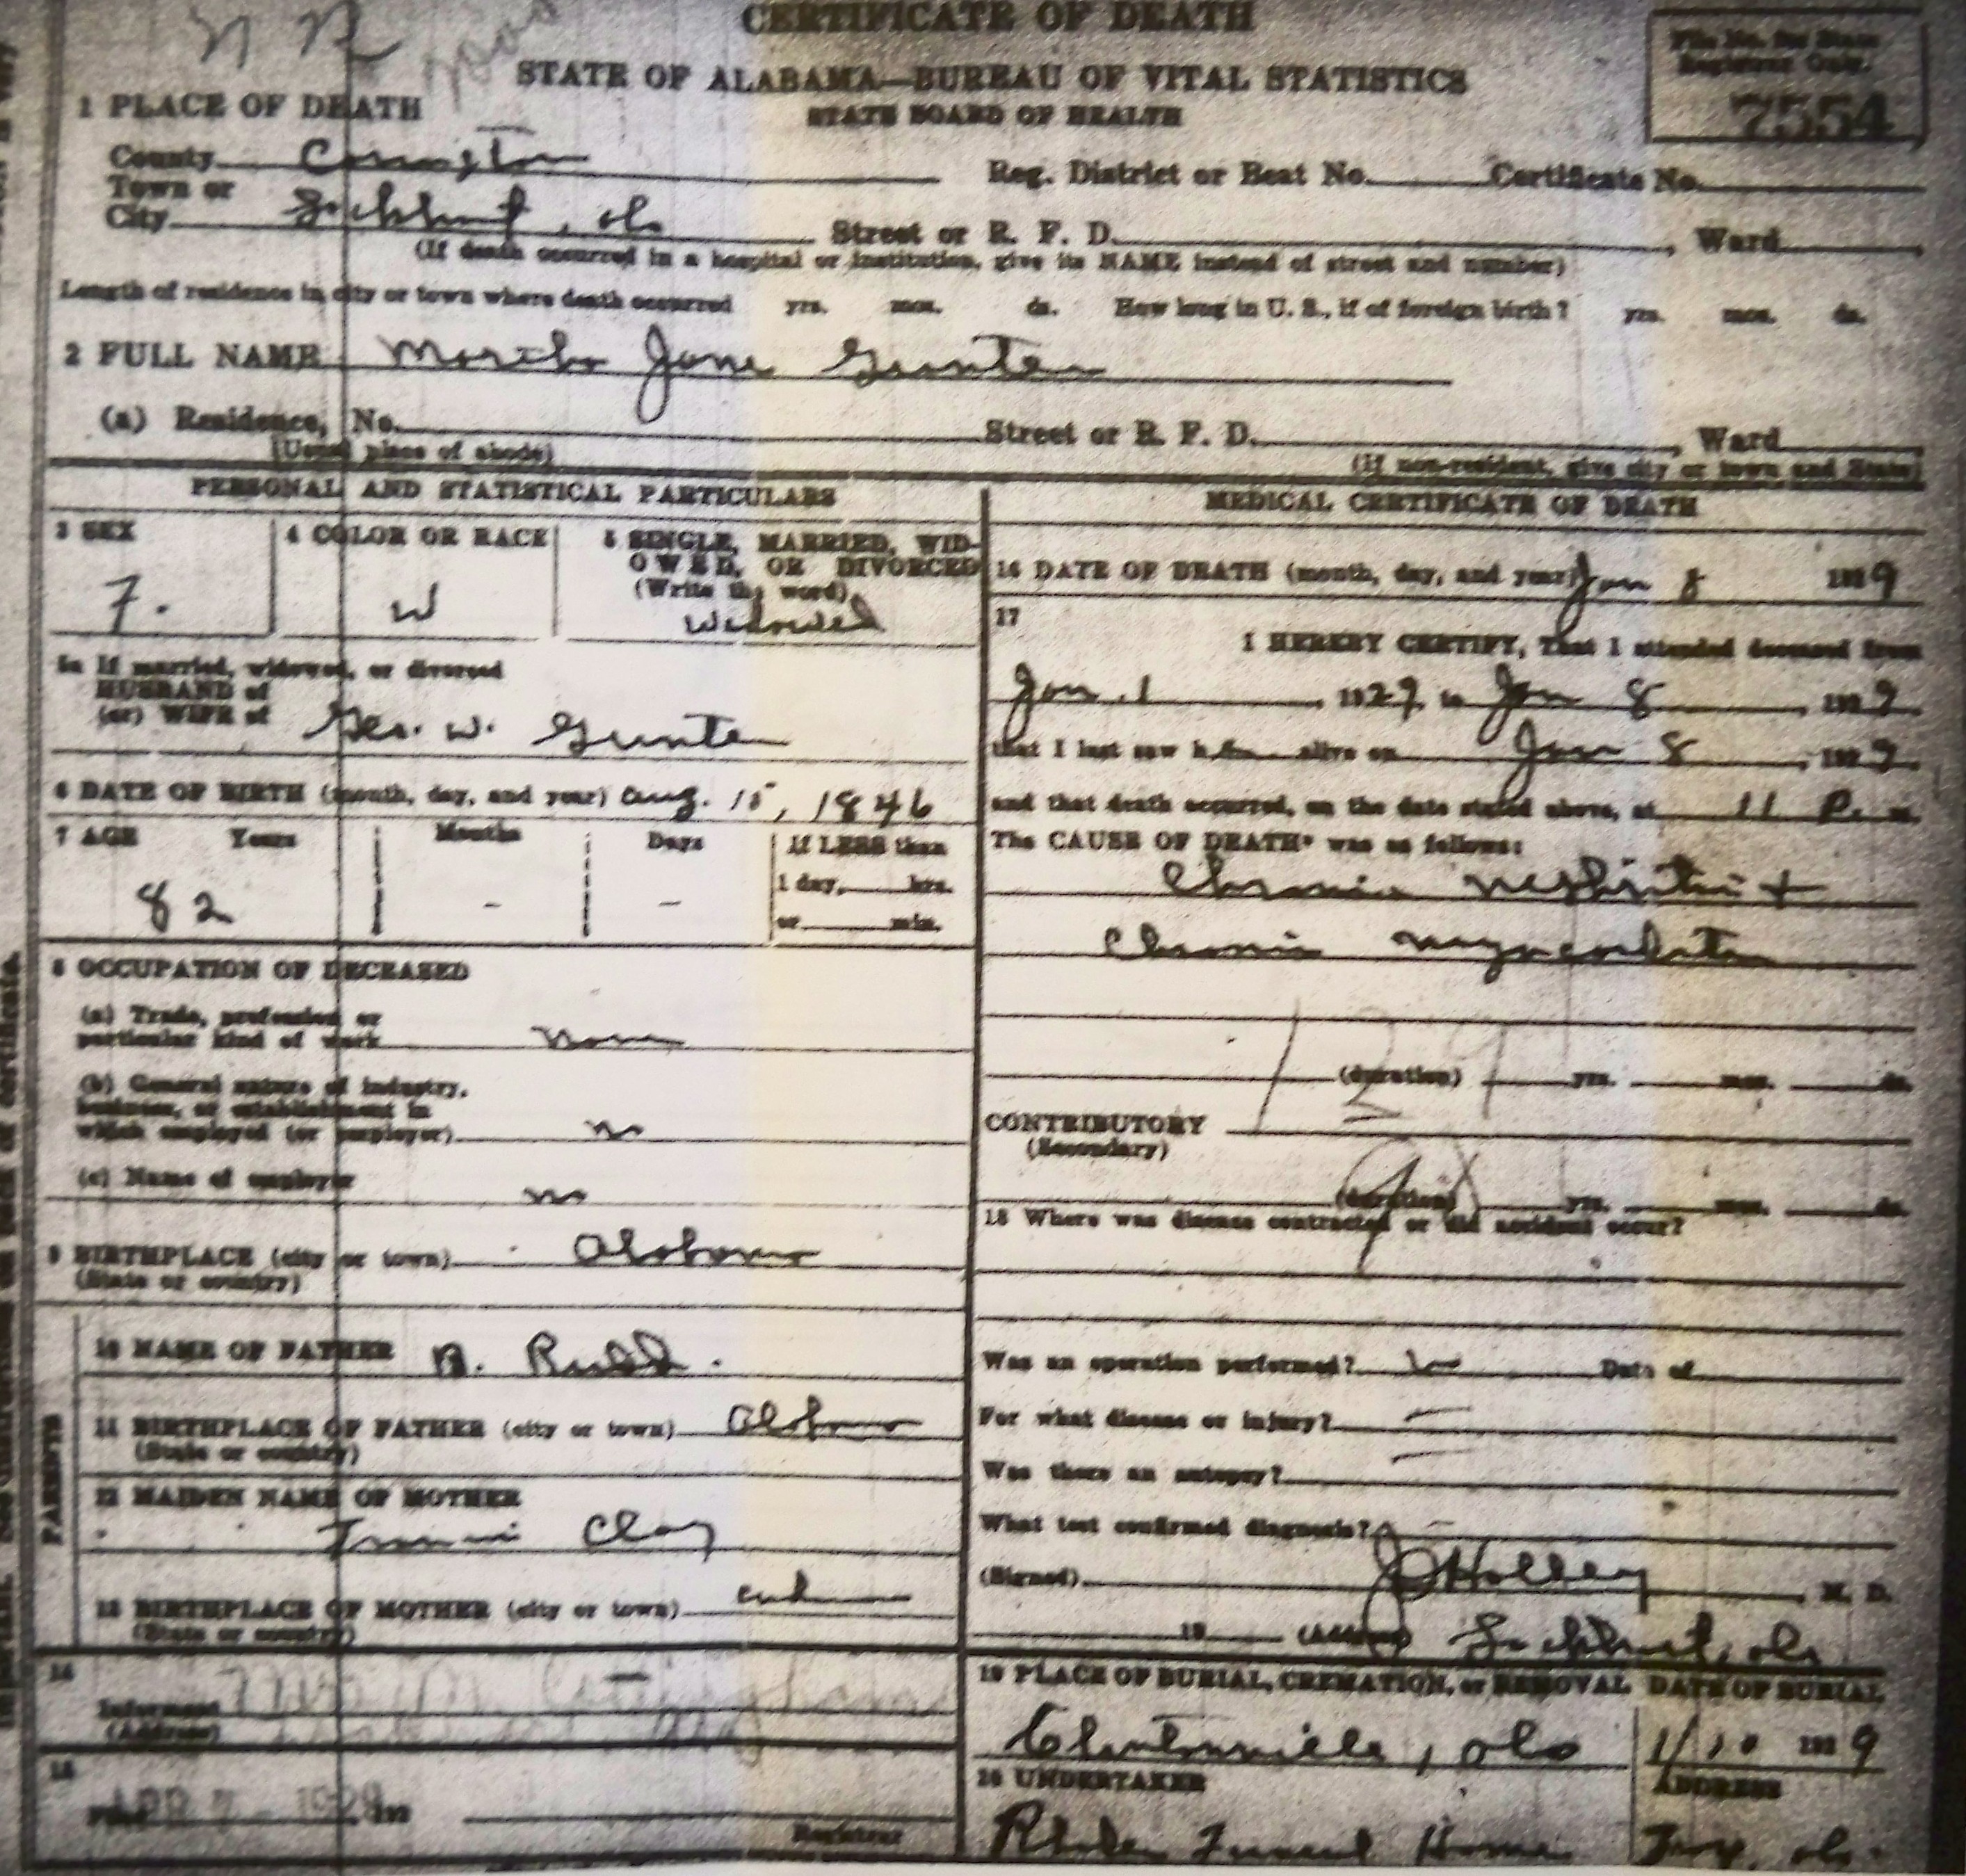 CERTIFICATE OF DEATH
STATE OF ALABAMA—BUREAU OF VITAL STATISTICS
STATE BOARD OF HEALTH
File No. for State
Registrar Only.
7554
1 PLACE OF DEATH
County Covington
Reg. District or Beat No. Certificate No.
Town or
City Lockhart, Ala
Street or R. F. D. , Ward
(If death occurred in a hospital or institution, give its NAME instead of street and number)
Length of residence in city or town where death occurred yrs. mos. ds. How long in U. S., if of foreign birth? yrs. mos. ds.
2 FULL NAME Martha Jane Gunter
(a) Residence, No. Street or R. F. D. , Ward
(Usual place of abode) (If non-resident, give city or town and State)
PERSONAL AND STATISTICAL PARTICULARS
3 SEX
F.
4 COLOR OR RACE
W
5 SINGLE, MARRIED, WID-
OWED, OR DIVORCED
(Write the word)
Widowed
5a If married, widowed, or divorced
HUSBAND of
(or) WIFE of Geo. W. Gunter
6 DATE OF BIRTH (month, day, and year) Aug. 15, 1846
7 AGE Years Months Days If LESS than
1 day, hrs.
or min.
82 - -
8 OCCUPATION OF DECEASED
(a) Trade, profession or
particular kind of work None
(b) General nature of industry,
business, or establishment in
which employed (or employer) no
(c) Name of employer no
9 BIRTHPLACE (city or town) Alabama
(State or country)
PARENTS
10 NAME OF FATHER Rudd.
11 BIRTHPLACE OF FATHER (city or town) Alabama
(State or country)
12 MAIDEN NAME OF MOTHER
Clay
13 BIRTHPLACE OF MOTHER (city or town)
(State or country)
14
Informant
(Address)
15
Filed APR 1929 192
Registrar
MEDICAL CERTIFICATE OF DEATH
16 DATE OF DEATH (month, day, and year) Jan 8 1929
17
I HEREBY CERTIFY, That I attended deceased from
Jan. 1 1929, to Jan 8, 1929.
that I last saw her alive on Jan 8, 1929.
and that death occurred, on the date stated above, at 11 P. m
The CAUSE OF DEATH* was as follows:
Chronic Nephritis +
Chronic Myocarditis
(duration) yrs. mos. ds.
CONTRIBUTORY
(Secondary)
(duration) yrs. mos. ds.
18 Where was disease contracted or did accident occur?
Was an operation performed? no Date of
For what disease or injury? -
Was there an autopsy? -
What test confirmed diagnosis? -
(Signed) Holley, M. D.
19 (Address) Lockhart, Ala.
19 PLACE OF BURIAL, CREMATION, or REMOVAL DATE OF BURIAL
Clintonville, Ala 1/10 1929
20 UNDERTAKER ADDRESS
Funeral Home Ala.